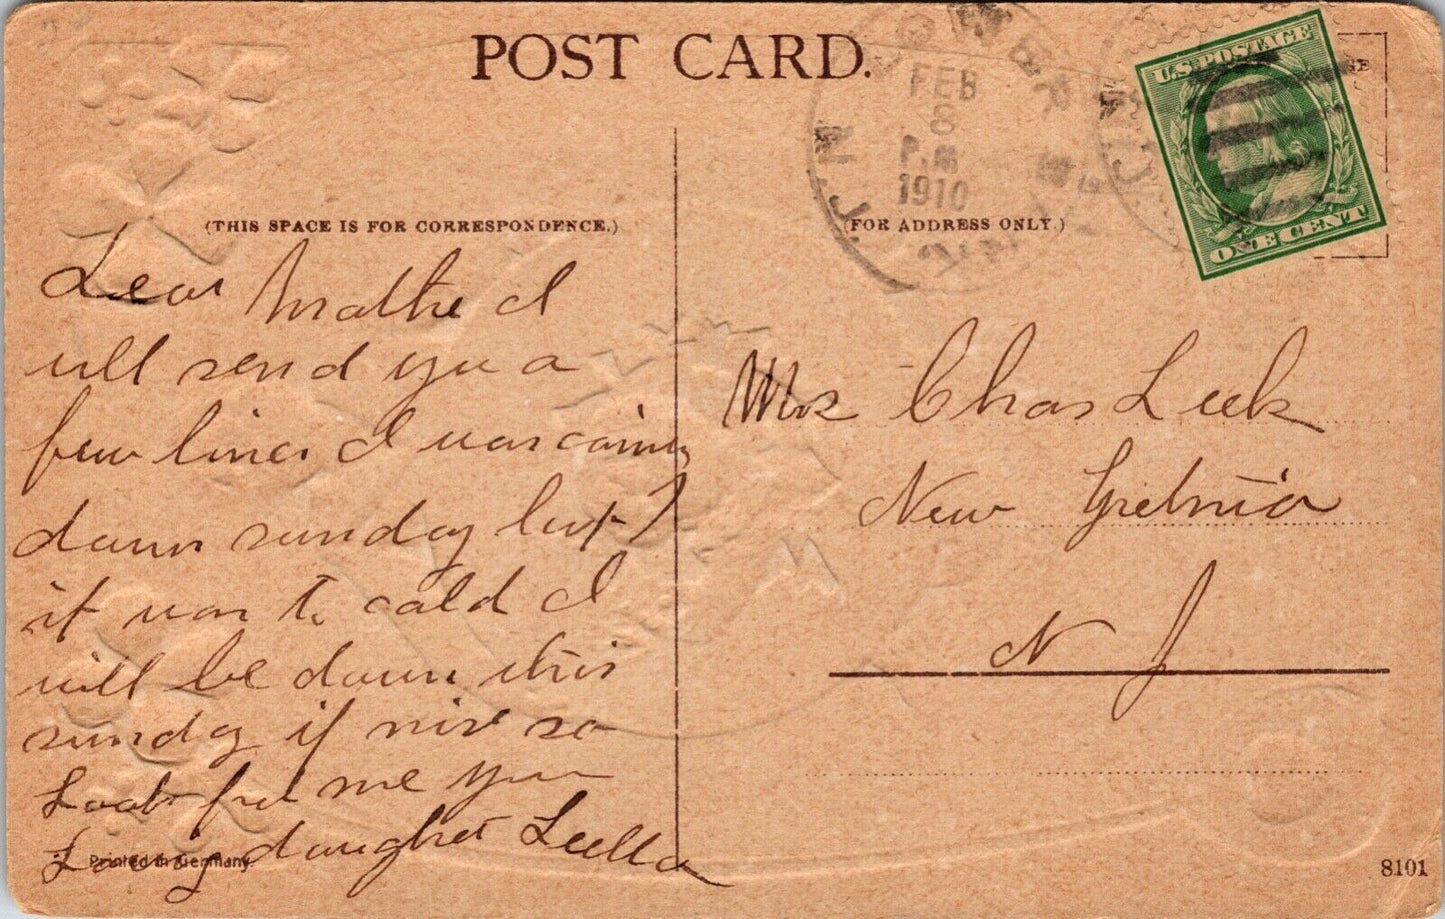 POST CARD.
FEB
8
P.M
1910
N.J.
U.S. POSTAGE
ONE CENT
(THIS SPACE IS FOR CORRESPONDENCE.)
(FOR ADDRESS ONLY.)
Dear Mothe I
will send you a
few lines I was coming
down sunday but
it was to cold I
will be down this
sunday if nise so
Look for me your
Loving daughter Luella
Mrs Chas Leek
New Gretnia
N J
Printed in Germany
8101